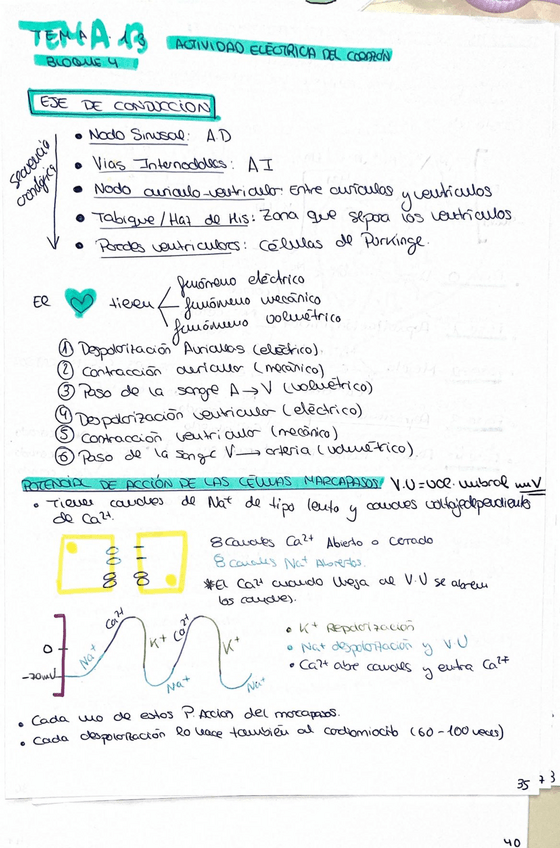 TEMA 13 ACTIVIDAD ELÉCTRICA DEL CORAZÓN
BLOQUE 4
EJE DE CONDUCCION
Secuencia cronológica
• Nodo Sinusal: A D
• Vias Internodales: A I
• Nodo auriculo-ventricular Entre auriculas y ventriculos
• Tabique/Haz de His: Zona que separa los ventriculos
• Paredes ventriculares: células de Purkinge.
El tienen
fenómeno eléctrico
fenómeno mecánico
fenómeno volumétrico
① Despolarización Auriculas (eléctrico).
② Contracción auricular (mecánico)
③ Paso de la sangre A → V (volumétrico)
④ Despolarización ventricular (eléctrico)
⑤ Contracción ventricular (mecánico)
⑥ Paso de la sangre V → arteria (volumétrico)
POTENCIAL DE ACCIÓN DE LAS CÉLULAS MARCAPASOS V.U = vol. umbral mV
• Tienen canales de Na+ de tipo lento y canales voltajedependiente
de Ca2+.
8 canales Ca2+ Abierto o cerrado
8 canales Na+ Abiertos.
*El Ca2+ cuando llega al V.U se abren
los canales.
0
-70mV
Na+
Ca2+
K+
Ca2+
K+
Na+
Na+
• K+ Repolarización
• Na+ despolarización y V.U
• Ca2+ abre canales y entra Ca2+
• Cada uno de estos P. Acción del marcapasos.
• Cada despolarización lo hace también al cardiomiocito (60-100 veces)
35
73
40